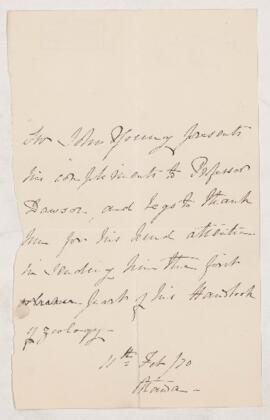 Sir John Young presents
his compliments to Professor
Dawson, and begs to thank
him for his kind attention
in sending him the first
part of his Handbook
of Zoology -
11th Feb /70
Ottawa -